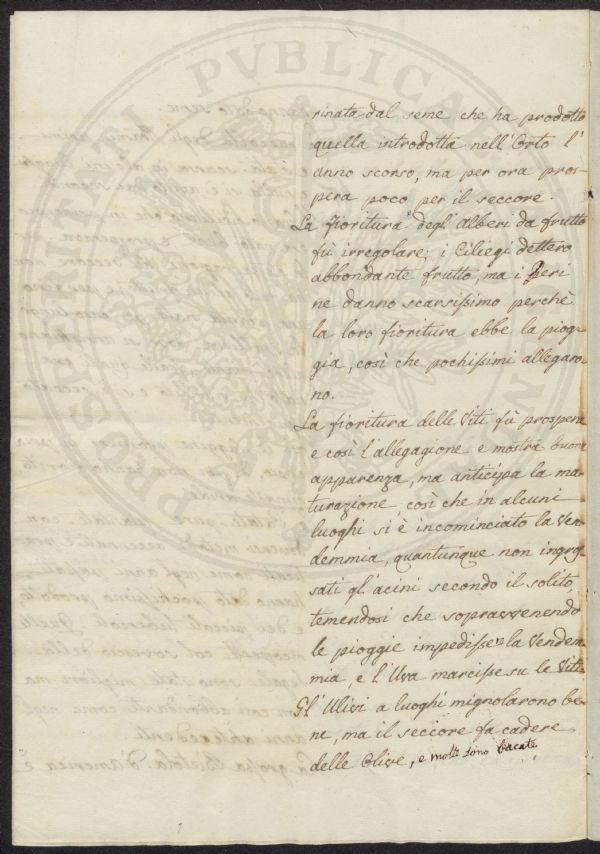 rinata dal seme che ha prodotto
quella introdotta nell'Orto l'
anno scorso, ma per ora pros-
pera poco per il seccore.
La fioritura degl'Alberi da frutto
fù irregolare; i Ciliegi dettero
abbondante frutto, ma i Peri
ne danno scarsissimo perchè
la loro fioritura ebbe la piog-
gia, così che pochissimi allegaro-
no.
La fioritura delle Viti fù prospera
e così l'allegagione e mostra buona
apparenza, ma anticipa la ma-
turazione, così che in alcuni
luoghi si è incominciato la Ven-
demmia, quantunque non ingros-
sati gl'acini secondo il solito,
temendosi che sopravvenendo
le pioggie impedisse la Vendem-
mia, e l'Uva marcisse su le Viti
Gl'Ulivi a luoghi mignolarono be-
ne, ma il seccore fa cadere
delle Olive, e molte sono bacate